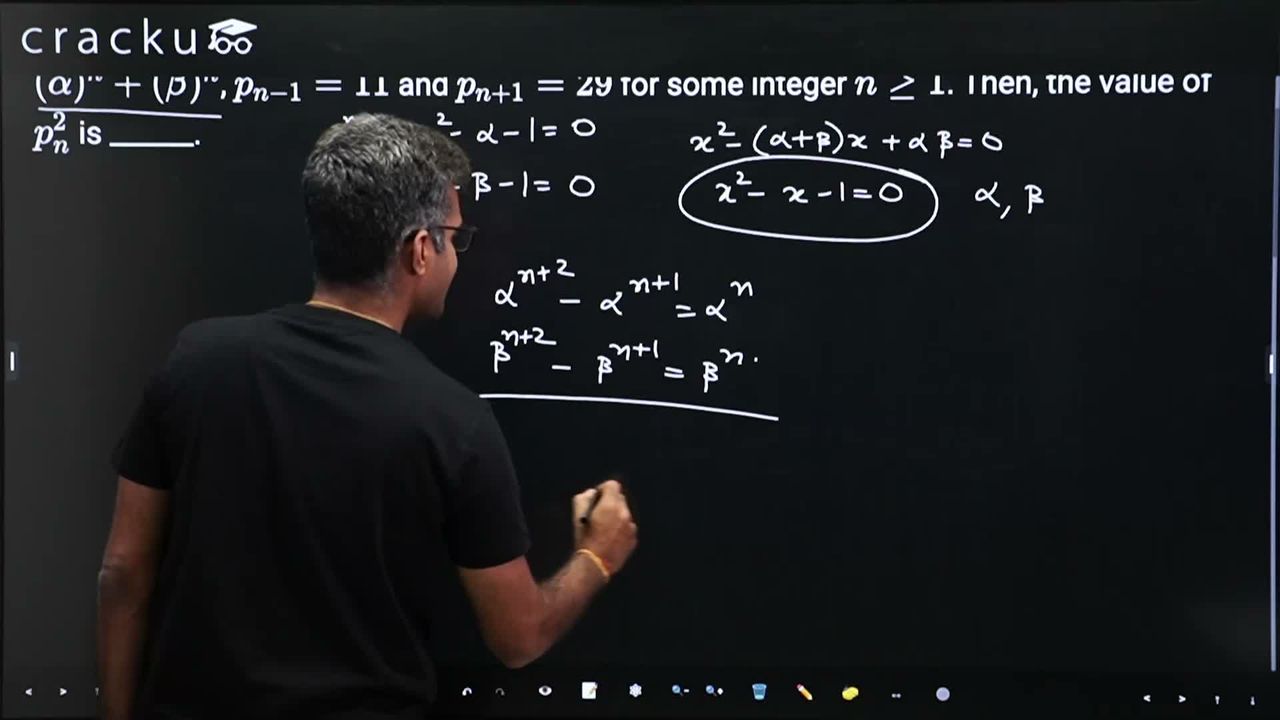 cracku
(α)ⁿ + (β)ⁿ, pₙ₋₁ = 11 and pₙ₊₁ = 29 for some integer n ≥ 1. Then, the value of
pₙ² is _____.
² - α - 1 = 0
x² - (α+β)x + αβ = 0
- β - 1 = 0
x² - x - 1 = 0
α, β
αⁿ⁺² - αⁿ⁺¹ = αⁿ
βⁿ⁺² - βⁿ⁺¹ = βⁿ.